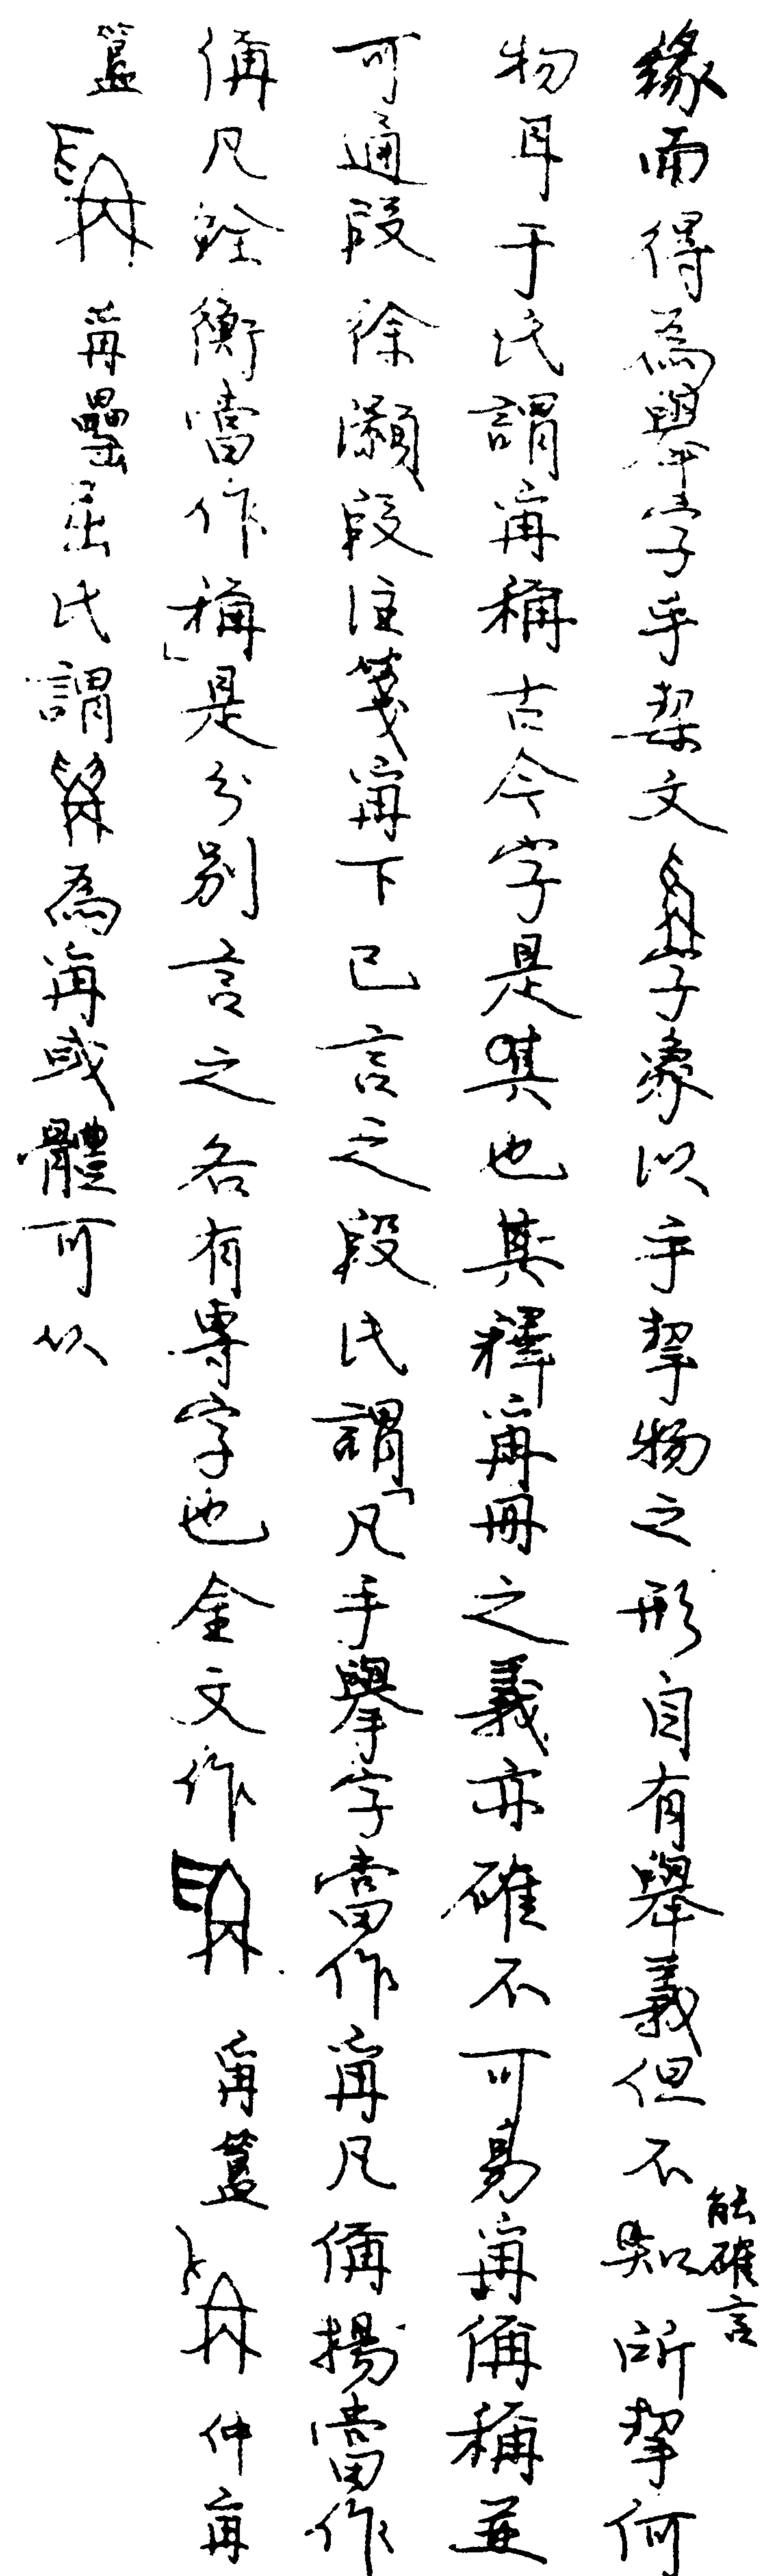 緣而得為舉字乎栔文字象以手挈物之形自有舉義但不能確言所挈何
物耳于氏謂爯稱古今字是也其釋爯冊之義亦確不可易爯偁稱並
可通段徐灝段注箋爯下已言之段氏謂「凡手舉字當作爯凡偁揚當作
偁凡銓衡當作稱」是分別言之各有專字也金文作 爯簋 仲爯
簋 爯罍屈氏謂 為爯或體可从